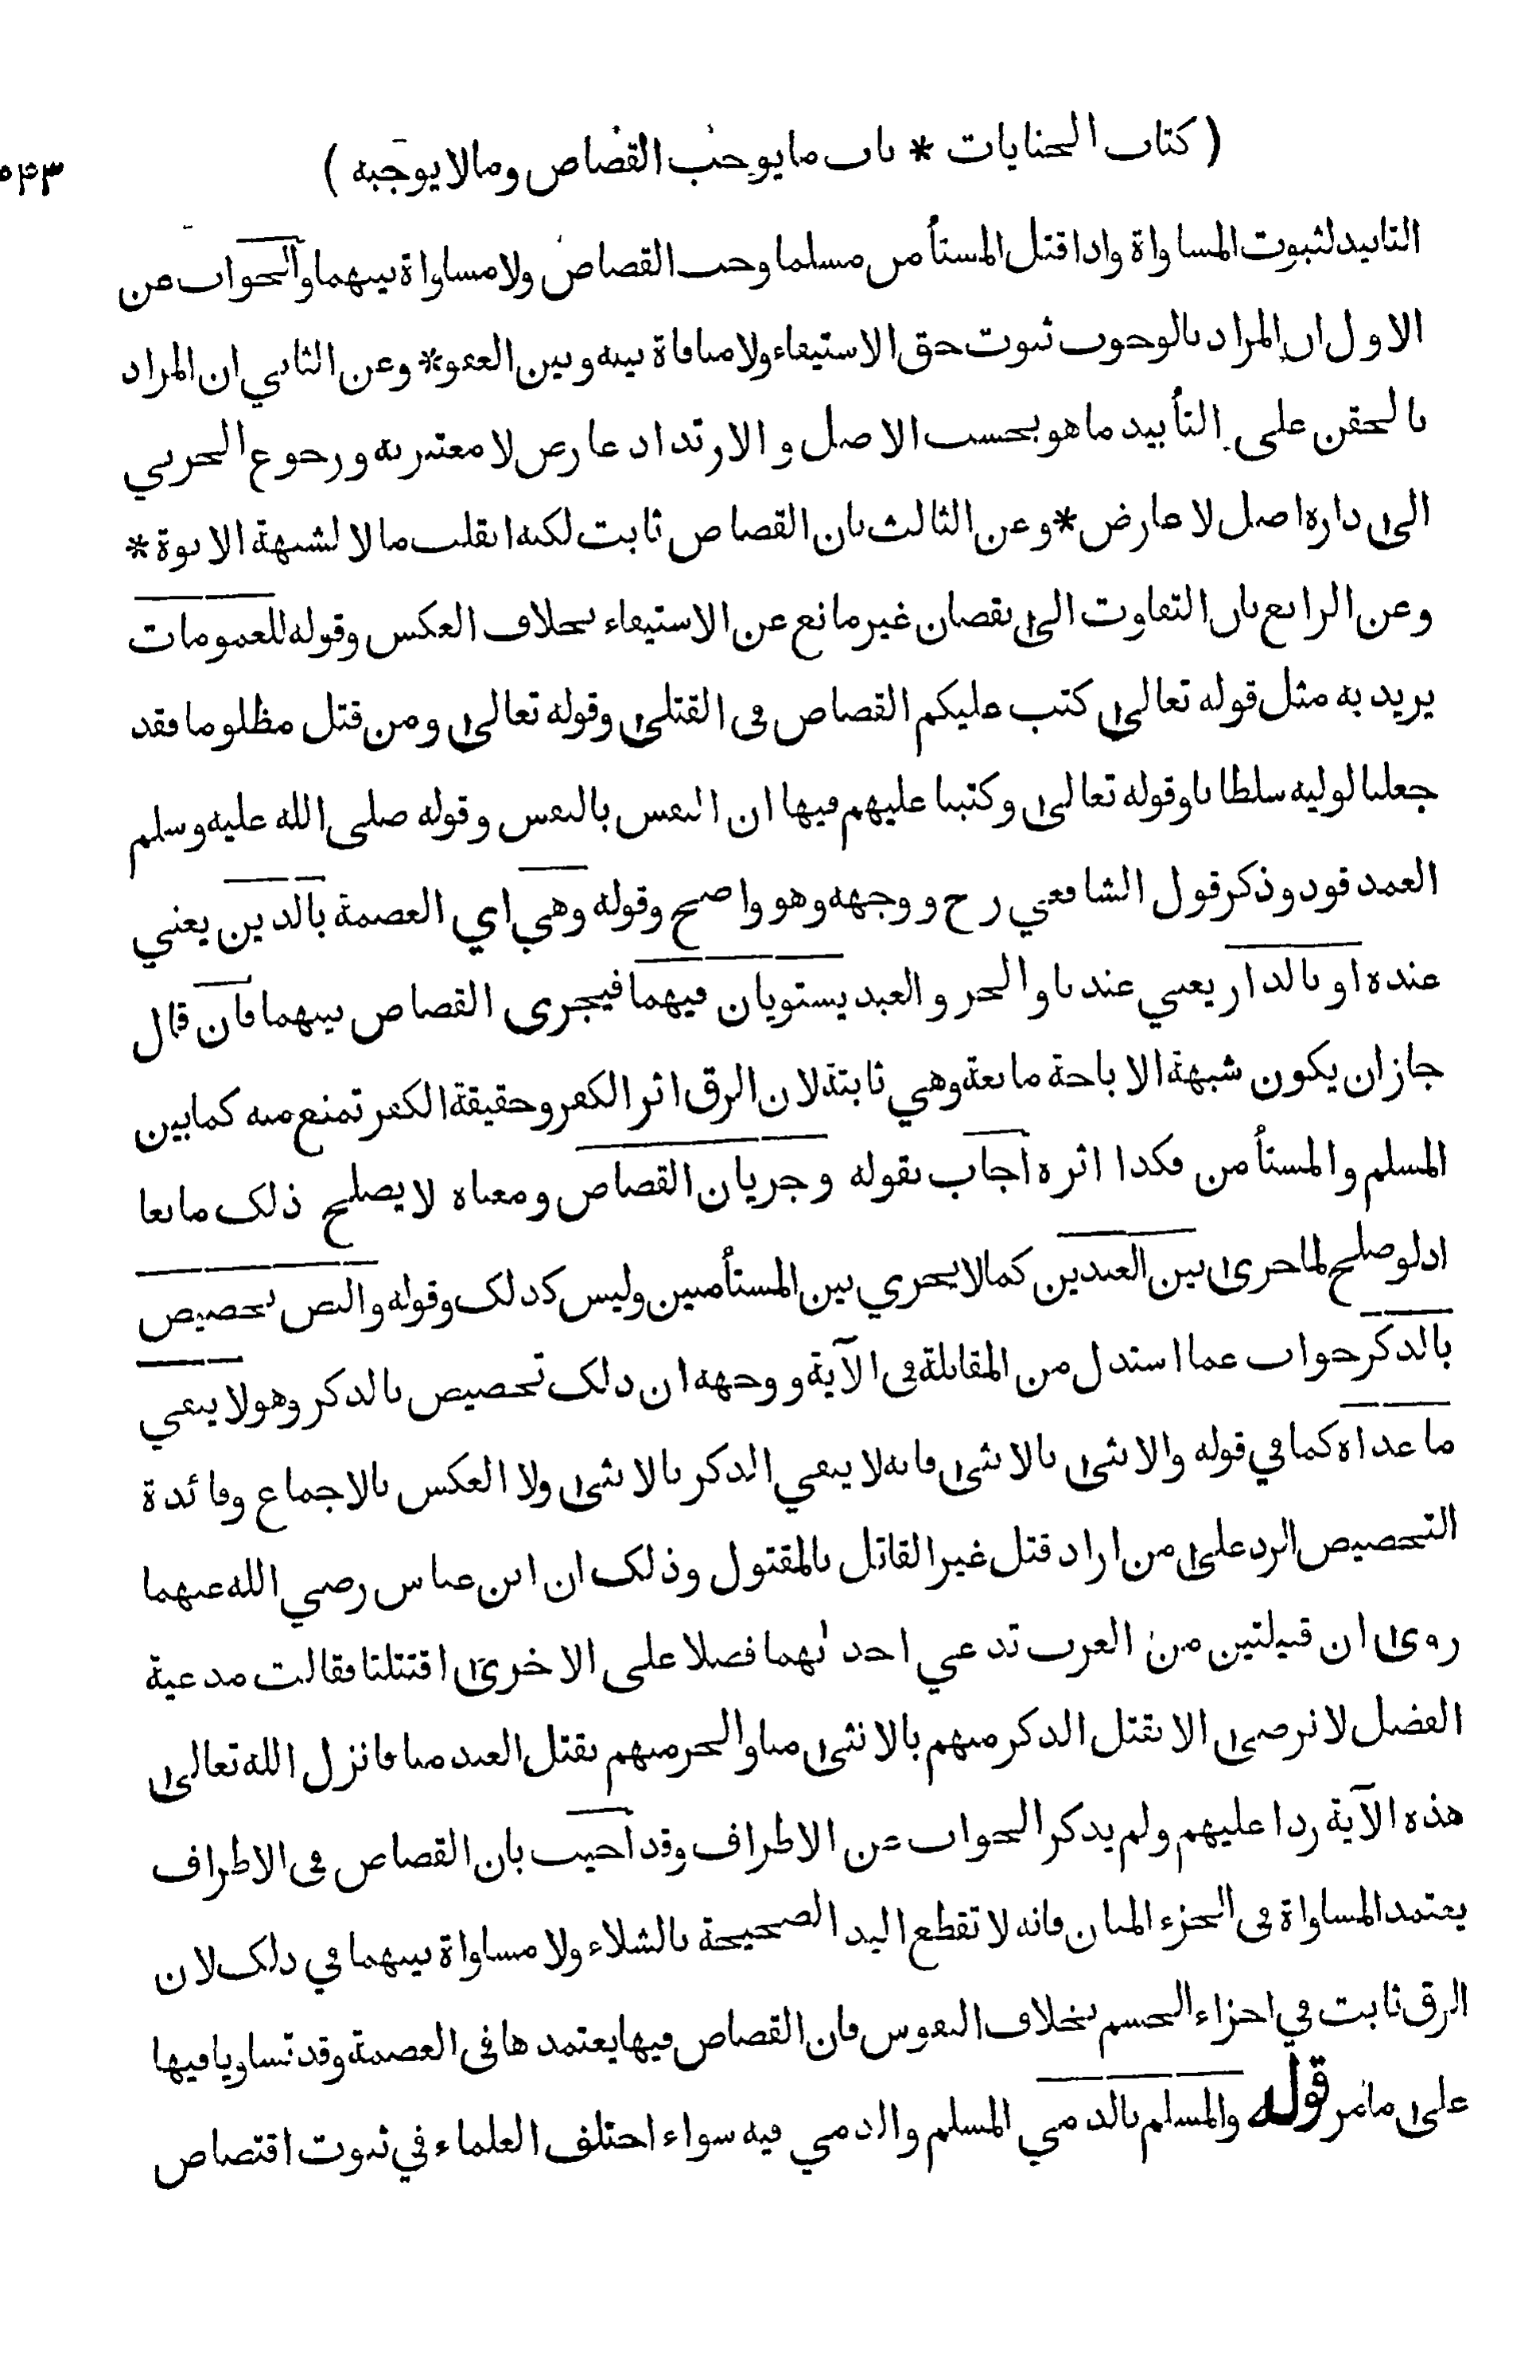 ( كتاب الجنايات * باب ما يوجب القصاص وما لا يوجبه )
التابيد لثبوت المساواة واذا قتل المستأمن مسلما وجب القصاص ولا مساواة بينهما والجواب عن
الاول ان المراد بالوجوب ثبوت حق الاستيفاء ولا منافاة بينه وبين العفو * وعن الثاني ان المراد
بالحقن على التأبيد ما هو بحسب الاصل والارتداد عارض لا معتبر به ورجوع الحربي
الى داره اصل لا عارض * وعن الثالث بان القصاص ثابت لكنه انقلب مالا لشبهة الابوة *
وعن الرابع بان التفاوت الى نقصان غير مانع عن الاستيفاء بخلاف العكس وقوله للعمومات
يريد به مثل قوله تعالى كتب عليكم القصاص فى القتلى وقوله تعالى ومن قتل مظلوما فقد
جعلنا لوليه سلطانا وقوله تعالى وكتبنا عليهم فيها ان النفس بالنفس وقوله صلى الله عليه وسلم
العمد قود وذكر قول الشافعي رح ووجهه وهو واضح وقوله وهي اي العصمة بالدين يعني
عنده او بالدار يعني عندنا والحر والعبد يستويان فيهما فيجرى القصاص بينهما فان قال
جاز ان يكون شبهة الاباحة مانعة وهي ثابتة لان الرق اثر الكفر وحقيقة الكفر تمنع منه كما بين
المسلم والمستأمن فكذا اثره اجاب بقوله وجريان القصاص ومعناه لا يصلح ذلك مانعا
اذ لو صلح لما جرى بين العبدين كما لا يجري بين المستأمنين وليس كذلك وقوله والنص تخصيص
بالذكر جواب عما استدل من المقابلة فى الآية ووجهه ان ذلك تخصيص بالذكر وهو لا ينفي
ما عداه كما في قوله والانثى بالانثى فانه لا ينفي الذكر بالانثى ولا العكس بالاجماع وفائدة
التخصيص الرد على من اراد قتل غير القاتل بالمقتول وذلك ان ابن عباس رضي الله عنهما
روى ان قبيلتين من العرب تدعي احدٰهما فضلا على الاخرى اقتتلتا فقالت مدعية
الفضل لا نرضى الا بقتل الذكر منهم بالانثى منا والحر منهم بقتل العبد منا فانزل الله تعالى
هذه الآية ردا عليهم ولم يذكر الجواب عن الاطراف وقد اجيب بان القصاص فى الاطراف
يعتمد المساواة فى الجزء المبان فانه لا تقطع اليد الصحيحة بالشلاء ولا مساواة بينهما في ذلك لان
الرق ثابت في اجزاء الجسم بخلاف النفوس فان القصاص فيها يعتمدها فى العصمة وقد تساويا فيها
على ما مر قوله والمسلم بالذمي المسلم والذمي فيه سواء اختلف العلماء في ثبوت اقتصاص